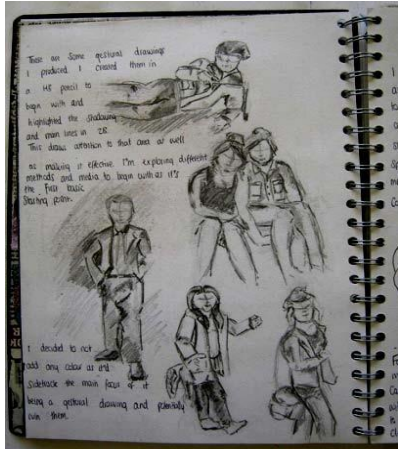 These are some gestural drawings
I produced I created them in
a HB pencil to
begin with and
highlighted the shadowing
and main lines in 2B
This draws attention to that area as well
as making it effective. I'm exploring different
methods and media to begin with as it's
the first basic
starting point.
I decided to not
add any colour as it'd
sidetrack the main focus of it
being a gestural drawing and potentially
ruin them.